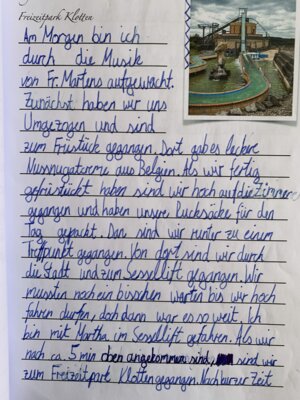 Freizeitpark Klotten
Am Morgen bin ich
durch die Musik
von Fr. Martens aufgewacht.
Zunächst haben wir uns
Umgezogen und sind
zum Früstück gegangen. Dort gab es leckere
Nussnugatcreme aus Belgien. Als wir fertig
gefrüstückt haben sind wir hoch auf die Zimmer
gegangen und haben unsere Rucksäcke für den
Tag gepackt. Dan sind wir runter zu einem
Treffpunkt gegangen. Von dort sind wir durch
die Stadt und zum Sessellift gegangen. Wir
mussten noch ein bisschen warten bis wir hoch
fahren durften, doch dann war es so weit. Ich
bin mit Martha im Sessellift gefahren. Als wir
nach ca. 5 min oben angekommen sind, sind wir
zum Freizeitpark Klotten gegangen. Nach kurzer Zeit